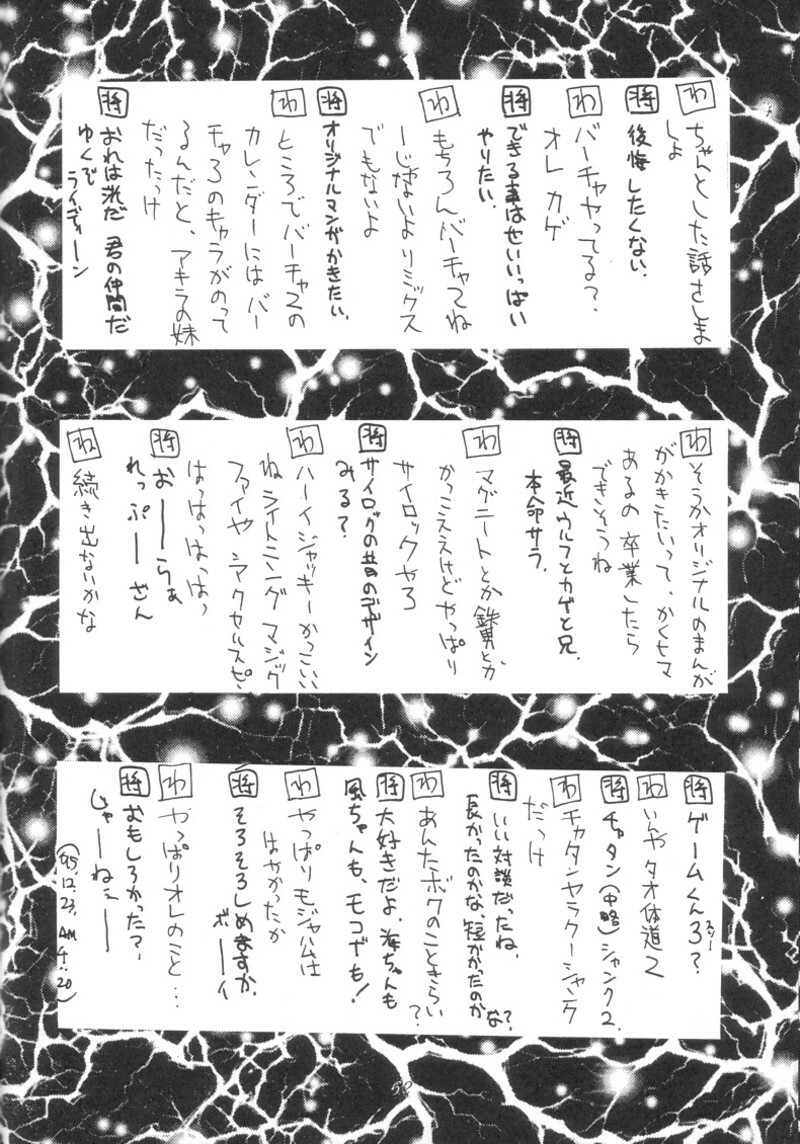 わ ちゃんとした話さしま
しょ
将 後悔したくない。
わ バーチャやってる？
オレ カゲ
将 できる事はせいいっぱい
やりたい。
わ もちろんバーチャ2ね
ーじゃないよリミックス
でもないよ
将 オリジナルマンガかきたい。
わ ところでバーチャ2の
カレンダーにはバー
チャ3のキャラがのって
るんだと、アキラの妹
だったっけ
将 おれは汎だ 君の仲間だ
ゆくで
ライディーン
わ そうかオリジナルのまんが
がかきたいって、かくヒマ
あるの 卒業したら
できそうね
将 最近ウルフとカゲと兄。
本命サラ。
わ マグニートとか鉄男とか
かっこええけどやっぱり
サイロックやろ
将 サイロックの昔のデザイン
みる？
わ ハーイジャッキーかっこいい
ねライトニング マジック
ファイヤ シアクセルスピ、
はっはっはっはっ
将 おーーらぁ
れっぷーざん
わ 続き出ないかな
将 ゲームくん3？
スリー
わ いんや タオ体道2
将 チャタン(中略)シャンク2。
わ チャタンヤラクーシャンク
だっけ
将 いい対談だったね。
長かったのかな、短かかったのか
な？
わ あんたボクのこときらい
？
将 大好きだよ。海ちゃんも
風ちゃんも、モコナも！
わ やっぱりモジャハムは
はやかったか
将 そろそろしめますか。
ボーイ
わ やっぱりオレのこと…
将 おもしろかった？
じゃーねぇーー
('95.12.23. AM
4:20)